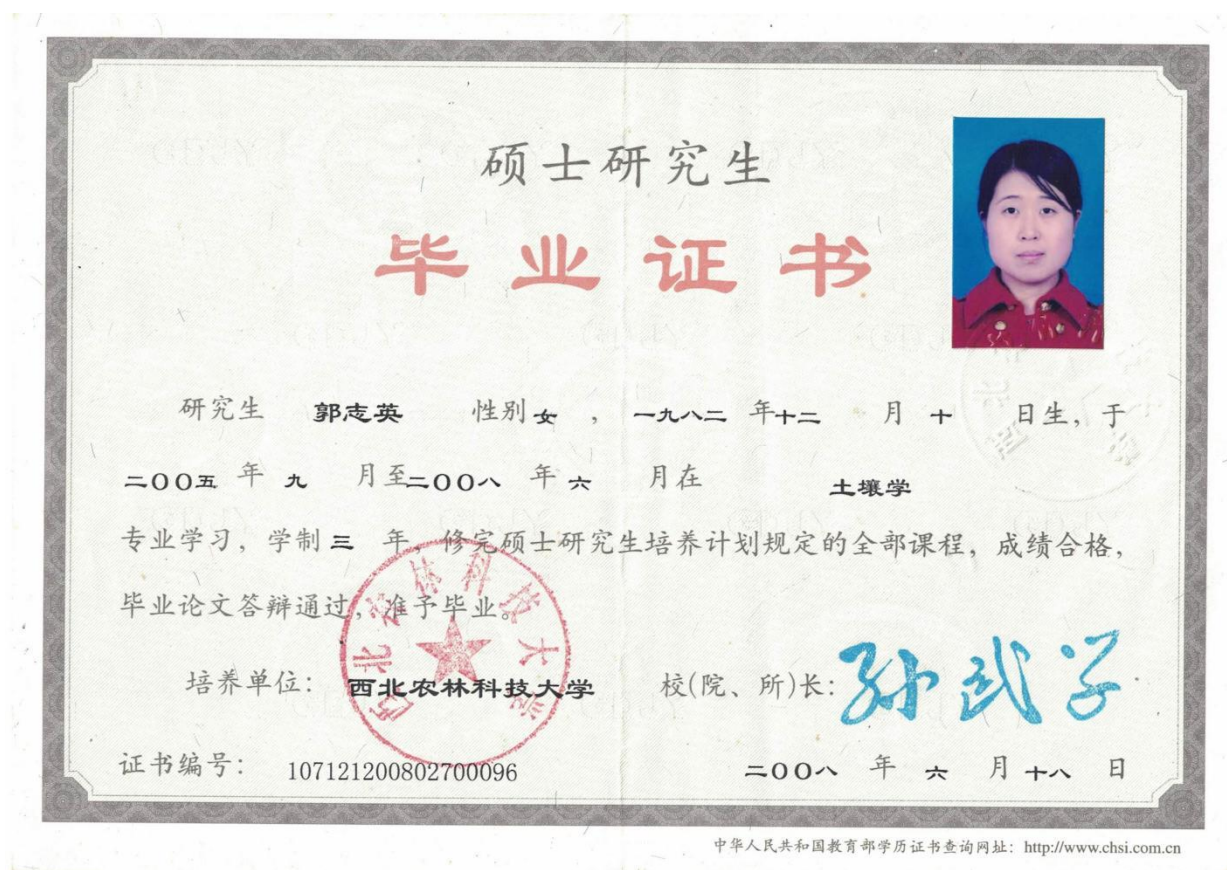 硕士研究生
毕业证书
研究生 郭志英 性别 女 , 一九八二 年 十二 月 十 日生, 于
二〇〇五 年 九 月至 二〇〇八 年 六 月在 土壤学
专业学习, 学制 三 年, 修完硕士研究生培养计划规定的全部课程, 成绩合格,
毕业论文答辩通过, 准予毕业。
培养单位: 西北农林科技大学 校(院、所)长: 孙武学
西北农林科技大学
证书编号: 107121200802700096 二〇〇八 年 六 月 十八 日
中华人民共和国教育部学历证书查询网址: http://www.chsi.com.cn